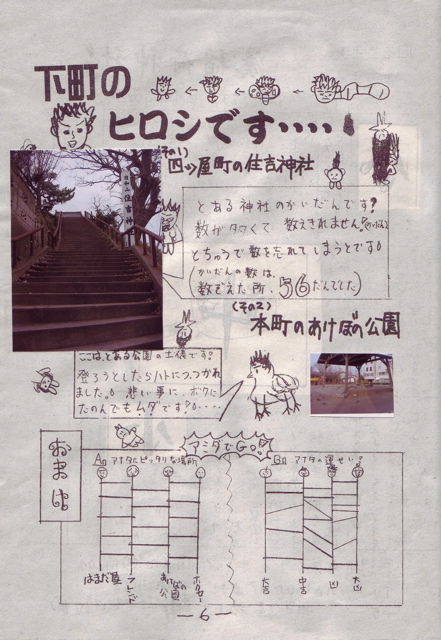 下町の
ヒロシです・・・・!
(その1)
四ッ屋町の住吉神社
住吉神
とある神社のかいだんです?
数が多くて 数えきれません!
とちゅうで数を忘れてしまうとです。
(かいだんの数は、
数ぞえた所、56だんでした)
(その2)
本町のあけぼの公園
ここは、とある公園の土俵です?
登ろうとしたらハトにつつかれ
ました。 悲しい事に、ボクに
たのんでもムダです?。・・・
おまけ
アミダでGO!
A. アナタにピッタリな場所
B. アナタの運せい?
はまだ屋
フレンド
あけぼの公園
ポーラー
大吉
中吉
凶
大凶
-6-